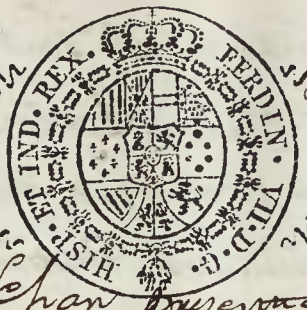 FERDIN. VII. D. G. HISP. ET IND. REX.
Se han